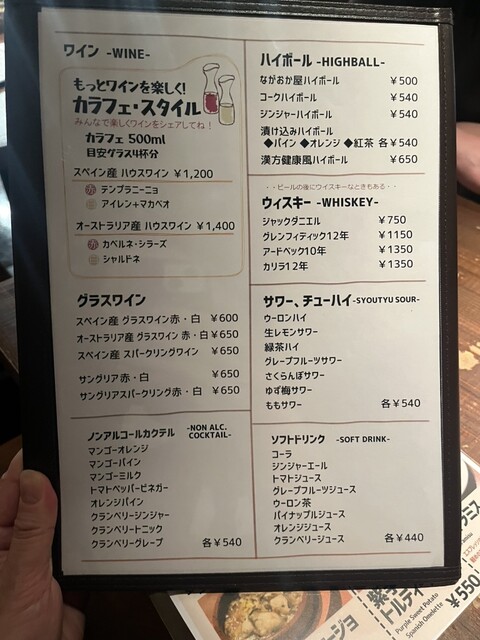 ワイン -WINE-
もっとワインを楽しく!
カラフェ・スタイル
みんなで楽しくワインをシェアしてね!
カラフェ 500ml
目安グラス4杯分
スペイン産 ハウスワイン ¥1,200
赤 テンプラニーニョ
白 アイレン+マカベオ
オーストラリア産 ハウスワイン ¥1,400
赤 カベルネ・シラーズ
白 シャルドネ
グラスワイン
スペイン産 グラスワイン 赤・白 ¥600
オーストラリア産 グラスワイン 赤・白 ¥650
スペイン産 スパークリングワイン ¥650
サングリア 赤・白 ¥650
サングリアスパークリング 赤・白 ¥650
ノンアルコールカクテル -NON ALC. COCKTAIL-
マンゴーオレンジ
マンゴーパイン
マンゴーミルク
トマトペッパービネガー
オレンジパイン
クランベリージンジャー
クランベリートニック
クランベリーグレープ 各¥540
ハイボール -HIGHBALL-
ながおか屋ハイボール ¥500
コークハイボール ¥540
ジンジャーハイボール ¥540
漬け込みハイボール
◆パイン ◆オレンジ ◆紅茶 各¥540
漢方健康風ハイボール ¥650
・・ビールの後にウイスキーなときもある・・
ウィスキー -WHISKEY-
ジャックダニエル ¥750
グレンフィディック12年 ¥1150
アードベック10年 ¥1350
カリラ12年 ¥1350
サワー、チューハイ -SYOUTYU SOUR-
ウーロンハイ
生レモンサワー
緑茶ハイ
グレープフルーツサワー
さくらんぼサワー
ゆず梅サワー
ももサワー 各¥540
ソフトドリンク -SOFT DRINK-
コーラ
ジンジャーエール
トマトジュース
グレープフルーツジュース
ウーロン茶
パイナップルジュース
オレンジジュース
クランベリージュース 各¥440
Purple Sweet Potato
Spanish Omelette
¥550